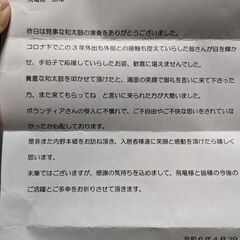 昨日は見事な和太鼓の演奏をありがとうございました。
コロナ下でこの３年外出も外部との接触も控えていらした皆さんが目を輝か
せ、手拍子で応援していらしたお姿、歓喜に堪えませんでした。
貴重な和太鼓を叩かせて頂けたと、満面の笑顔で御礼を言いに来て下さった
方、また来てもらってね　と言いに来られた方が大勢いました。
ボランティアさんの受入に不慣れで、ご不自由やご不便をされていな
かったか心配しております。
是非また内野本郷をお訪ね頂き、入居者様達に笑顔と感動を頂けたら嬉しく
思います。
末筆ではございますが、感謝の気持ちを込めまして、飛竜様と皆様の今後の
ご活躍とご多幸をお祈りさせて頂きます。
令和６年４月２９